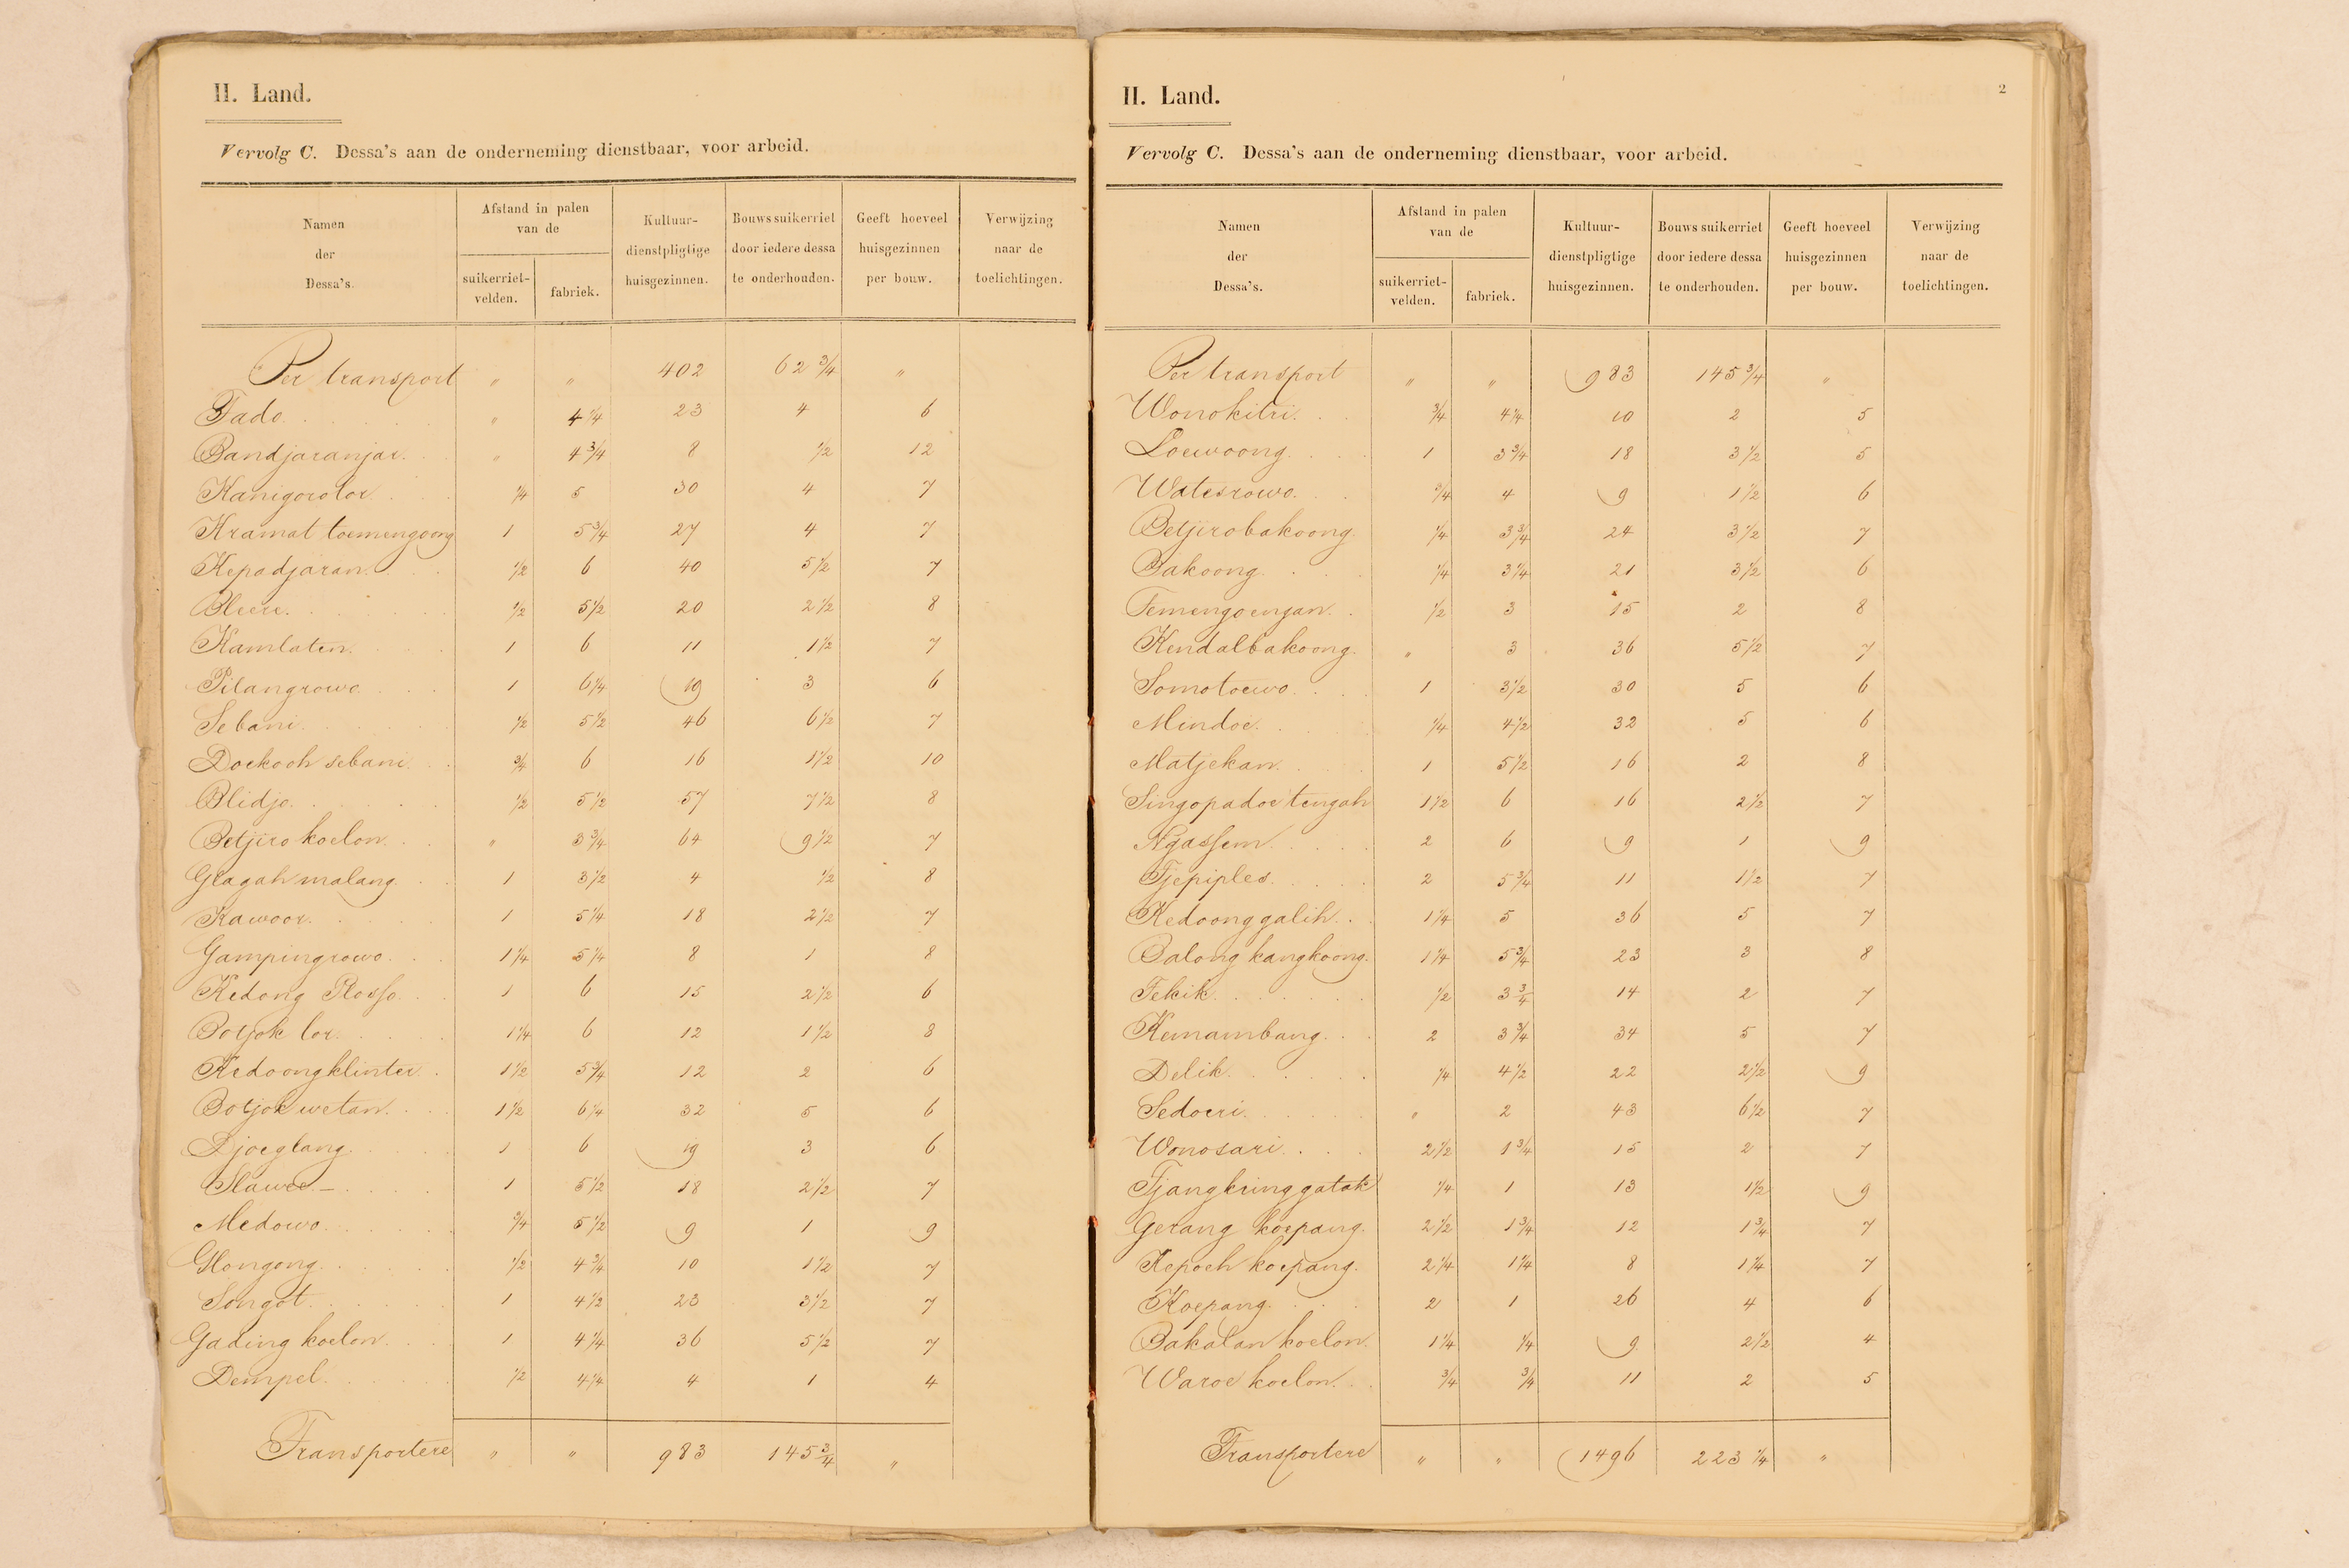 II. Land.
Vervolg C. Dessa's aan de onderneming dienstbaar, voor arbeid.
Namen der Dessa's. Afstand in palen van de suikerriet-velden. fabriek. Kultuur-dienstpligtige huisgezinnen. Bouws suikerriet door iedere dessa te onderhouden. Geeft hoeveel huisgezinnen per bouw. Verwijzing naar de toelichtingen.
Per transport " " 402 62 3/4 "
Tado. " 4 1/4 23 4 6
Bandjaranjar. " 4 3/4 8 1/2 12
Kanigoro lor 1/4 5 30 4 7
Kramat toemengoong 1 5 3/4 27 4 7
Kepadjaran. 1/2 6 40 5 1/2 7
Bleeu. 1/2 5 1/2 20 2 1/2 8
Kamlaten. 1 6 11 1 1/2 7
Pilangrowo 1 6 1/4 19 3 6
Sebani 1/2 5 1/2 46 6 1/2 7
Doekoeh sebani 3/4 6 16 1 1/2 10
Blidjo. 1/2 5 1/2 57 7 1/2 8
Betjiro koelon. " 3 3/4 64 9 1/2 7
Glagah malang. 1 3 1/2 4 1/2 8
Kawoor. 1 5 1/4 18 2 1/2 7
Gampingrowo. 1 1/4 5 1/4 8 1 8
Kedong Rosso. 1 6 15 2 1/2 6
Botjok lor. 1 1/4 6 12 1 1/2 8
Kedoongklinter. 1 1/2 5 3/4 12 2 6
Botjok wetan. 1 1/2 6 1/4 32 5 6
Djoeglang. 1 6 19 3 6
Slawee.— 1 5 1/2 18 2 1/2 7
Medowo. 3/4 5 1/2 9 1 9
Glongong. 1/2 4 3/4 10 1 1/2 7
Songot. 1 4 1/2 23 3 1/2 7
Gading koelon. 1 4 1/4 36 5 1/2 7
Dempel. 1/2 4 1/4 4 1 4
Transportere " " 983 145 3/4 "
2
II. Land.
Vervolg C. Dessa's aan de onderneming dienstbaar, voor arbeid.
Namen der Dessa's. Afstand in palen van de suikerriet-velden. fabriek. Kultuur-dienstpligtige huisgezinnen. Bouws suikerriet door iedere dessa te onderhouden. Geeft hoeveel huisgezinnen per bouw. Verwijzing naar de toelichtingen.
Per transport " " 983 145 3/4 "
Wonokitri. 3/4 4 1/4 10 2 5
Loewoong. 1 3 3/4 18 3 1/2 5
Watesrowo. 3/4 4 9 1 1/2 6
Betjirobakoong 1/4 3 3/4 24 3 1/2 7
Bakoong. 1/4 3 1/4 21 3 1/2 6
Temengoengan. 1/2 3 15 2 8
Kendalbakoong. " 3 36 5 1/2 7
Somotoewo. 1 3 1/2 30 5 6
Mindoe. 1/4 4 1/2 32 5 6
Matjekan. 1 5 1/2 16 2 8
Singopadoe tengah 1 1/2 6 16 2 1/2 7
Ngassem. 2 6 9 1 9
Tjepiples. 2 5 3/4 11 1 1/2 7
Kedoong galih. 1 1/4 5 36 5 7
Balong kangkoong. 1 1/4 5 3/4 23 3 8
Tekik. 1/2 3 3/4 14 2 7
Kemambang. 2 3 3/4 34 5 7
Delik. 1/4 4 1/2 22 2 1/2 9
Sedoeri. " 2 43 6 1/2 7
Wonosari. 2 1/2 1 3/4 15 2 7
Tjangkring gatak 1/4 1 13 1 1/2 9
Gerang koepang. 2 1/2 1 3/4 12 1 3/4 7
Kepoeh koepang. 2 1/4 1 1/4 8 1 1/4 7
Koepang. 2 1 26 4 6
Bakalan koelon. 1 1/4 1/4 9 2 1/2 4
Waroe koelon. 3/4 3/4 11 2 5
Transportere " " 1496 223 1/4 "